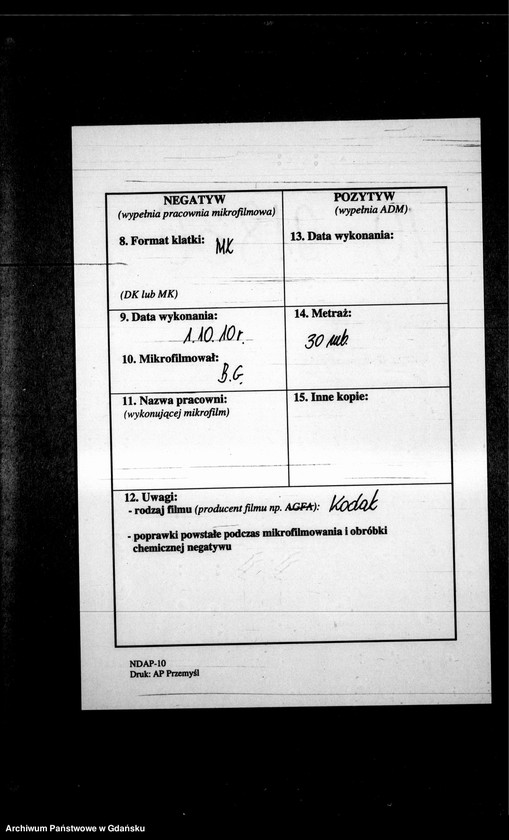 NEGATYW
(wypełnia pracownia mikrofilmowa)
8. Format klatki: MK
(DK lub MK)
9. Data wykonania:
1.10.10r.
10. Mikrofilmował:
B.G.
11. Nazwa pracowni:
(wykonującej mikrofilm)
POZYTYW
(wypełnia ADM)
13. Data wykonania:
14. Metraż:
30 mb.
15. Inne kopie:
12. Uwagi:
- rodzaj filmu (producent filmu np. AGFA): Kodak
- poprawki powstałe podczas mikrofilmowania i obróbki
chemicznej negatywu
NDAP-10
Druk: AP Przemyśl
Archiwum Państwowe w Gdańsku